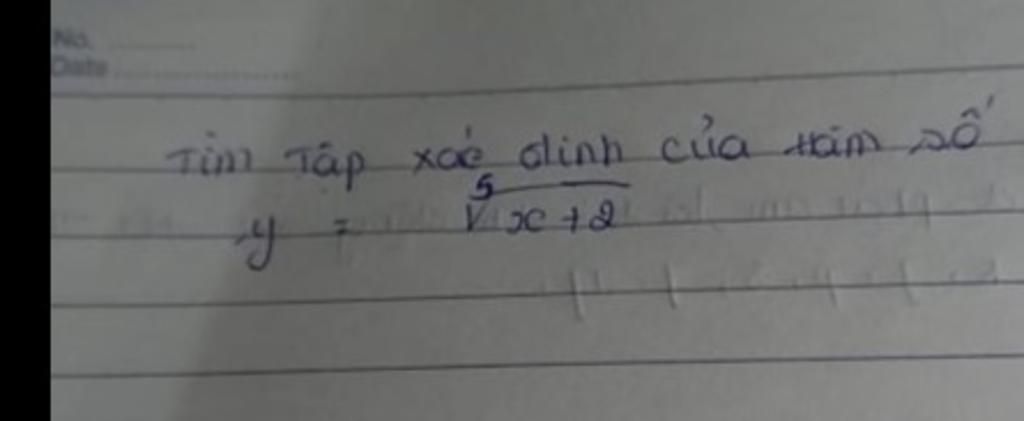 No. ............
Date ........................
Tìm Tập xác định của hàm số
y = ⁵√x+2